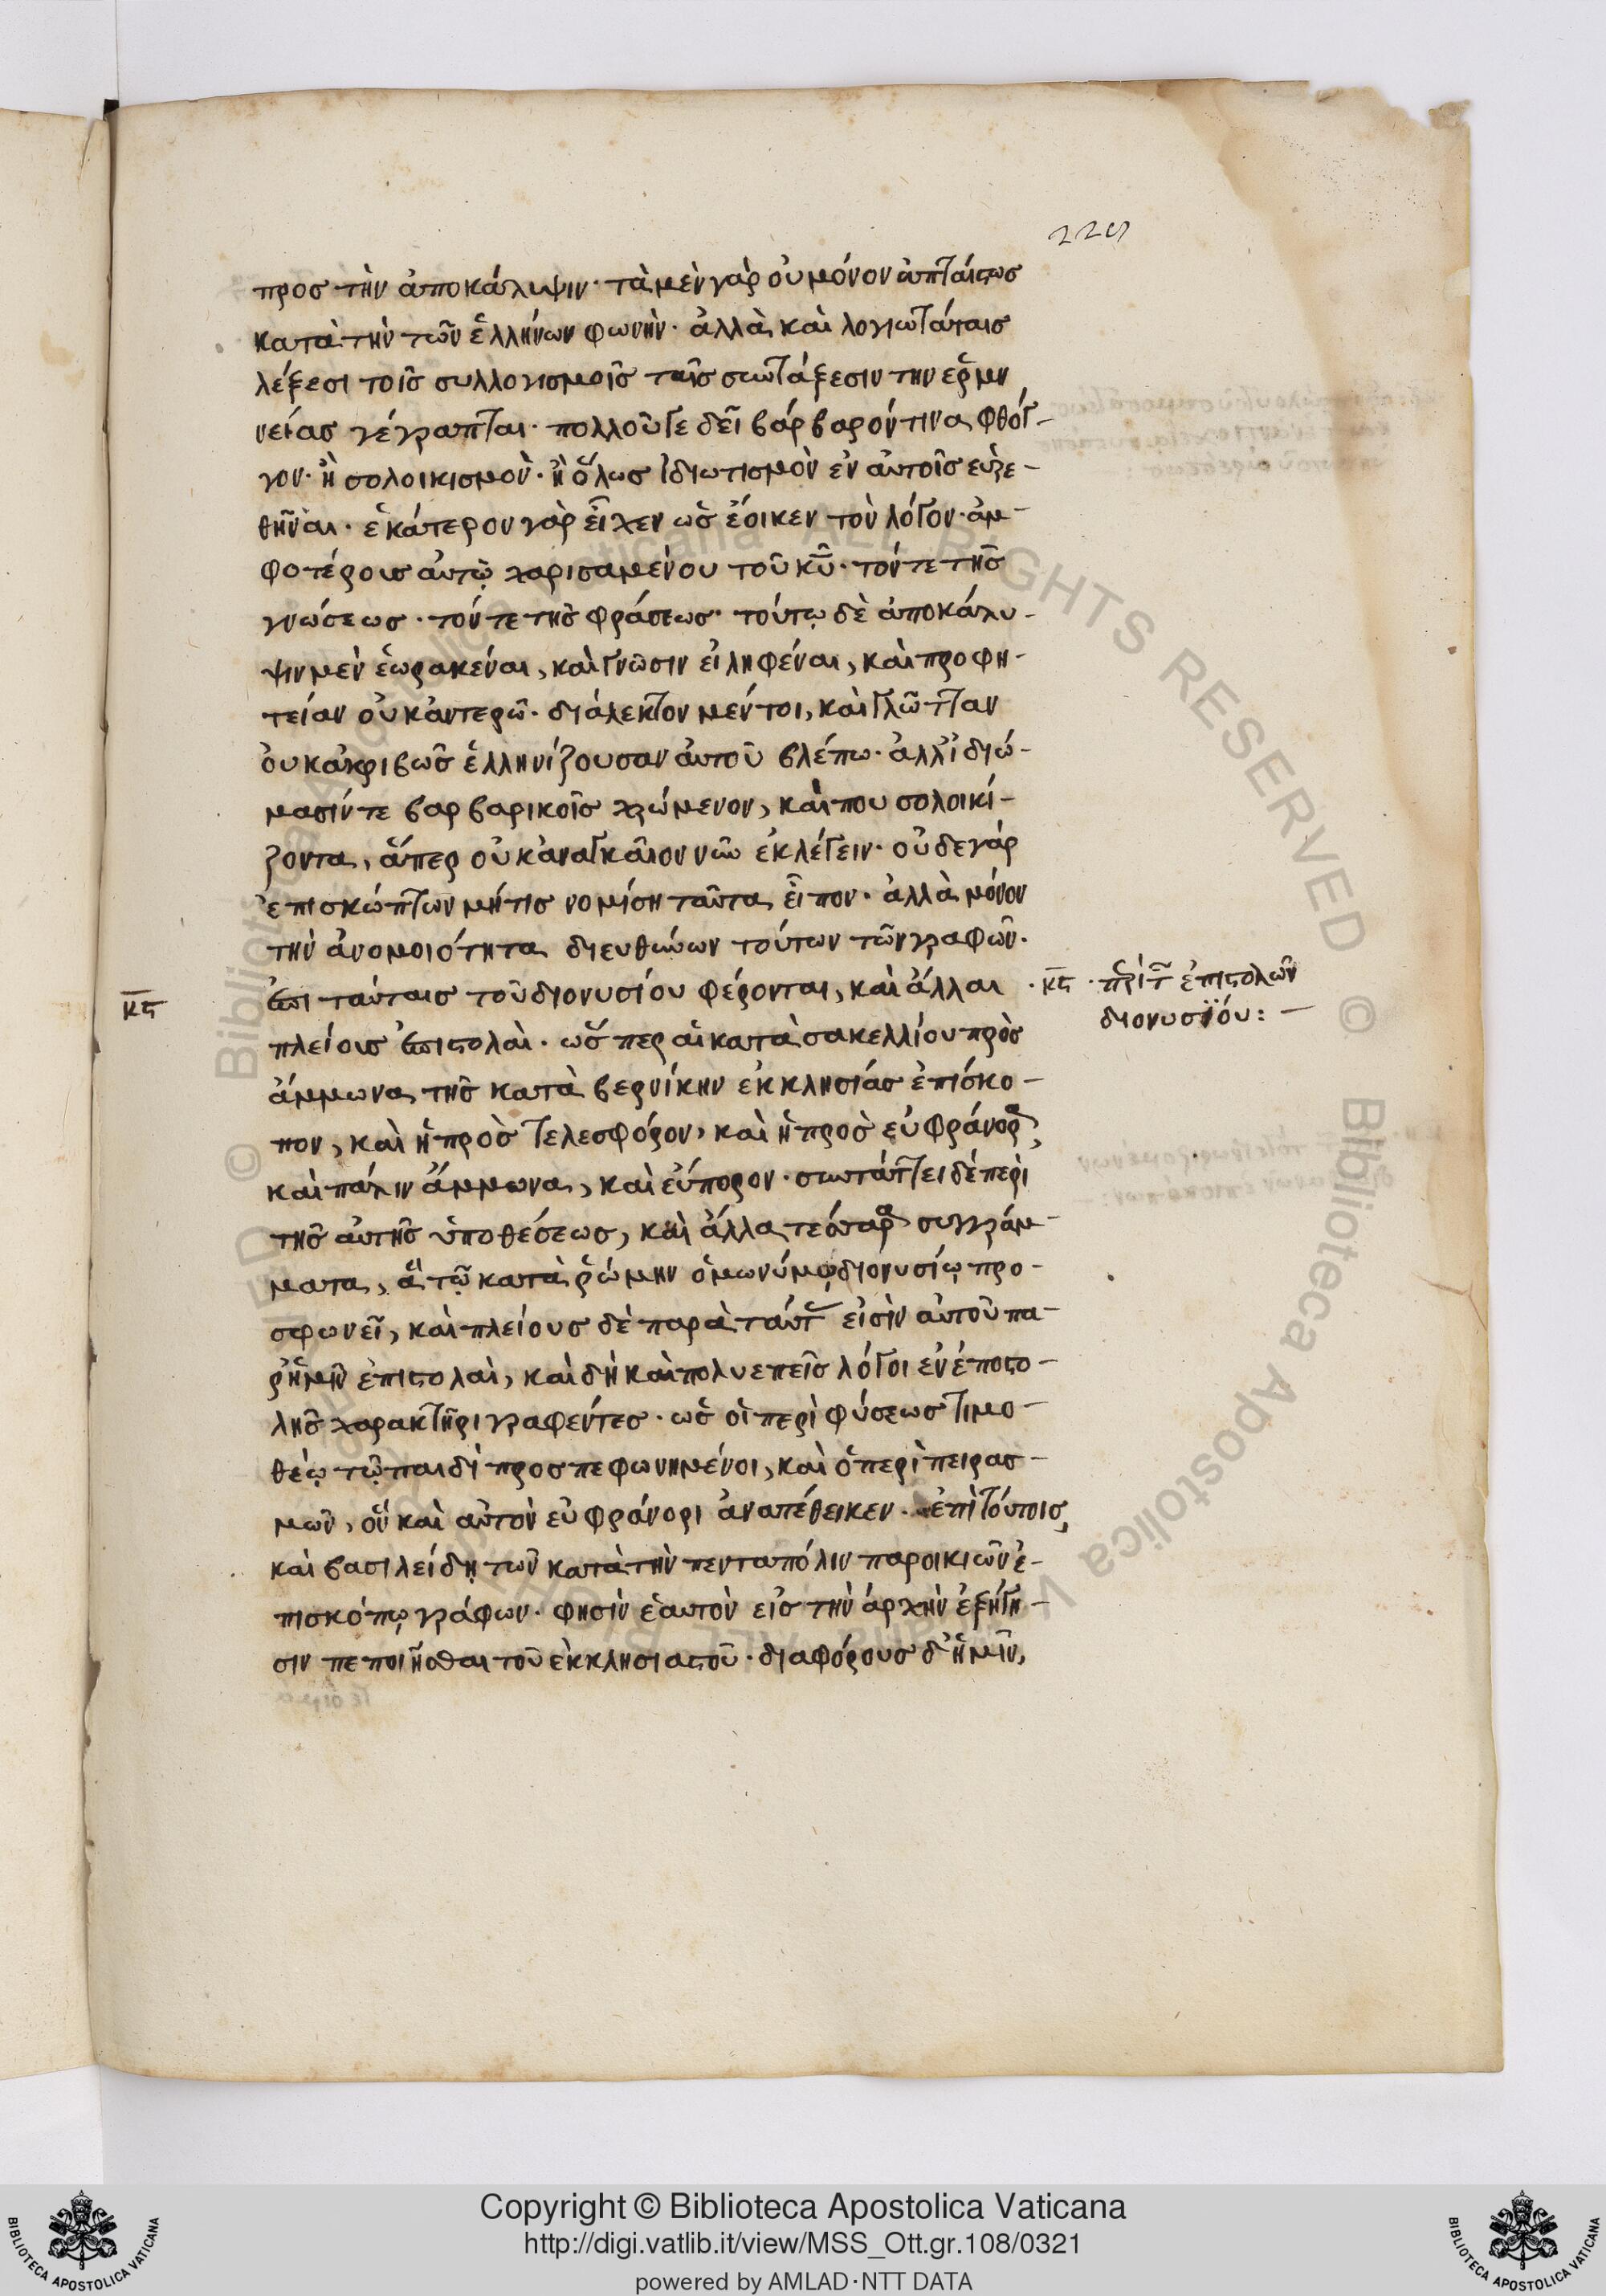 229
προσ τὴν ἀποκάλυψιν· τὰ μὲν γὰρ οὐ μόνον ἀπταίστωσ
κατὰ τὴν τῶν ἑλλήνων φωνὴν· ἀλλὰ καὶ λογιωτάταισ
λέξεσι τοῖσ συλλογισμοῖσ ταῖσ συντάξεσιν τῆν ἑρμη
νείασ γέγραπται· πολλοῦγε δεῖ βάρβαρόν τινα φθόγ-
γον· ἢ σολοικισμὸν· ἢ ὅλωσ ἰδιωτισμὸν ἐν αὐτοῖσ εὑρε-
θῆναι· ἑκάτερον γὰρ εἶχεν ὡσ ἔοικεν τὸν λόγον· ἀμ-
φοτέρουσ αὐτῷ χαρισαμένου τοῦ κῦ· τόν τε τῆσ
γνώσεωσ· τόν τε τῆσ φράσεωσ· τούτῳ δὲ ἀποκάλυ-
ψιν μὲν ἑωρακέναι, καὶ γνῶσιν εἰληφέναι, καὶ προφη-
τείαν οὐκ ἀντερῶ· διάλεκτον μέντοι, καὶ γλῶτταν
οὐκ ἀκριβῶσ ἑλληνίζουσαν αὐτοῦ βλέπω· ἀλλ' ἰδιώ-
μασίν τε βαρβαρικοῖσ χρώμενον, καί που σολοικί-
ζοντα, ἅπερ οὐκ ἀναγκαῖον νῦν ἐκλέγειν· οὐδε γάρ
ἐπισκώπτων μήτισ νομίση ταῦτα εἶπον· ἀλλὰ μόνον
τὴν ἀνομοιότητα διευθύνων τούτων τῶν γραφῶν·
κϛ
ἐπι ταύταισ τοῦ διονυσίου φέρονται, καὶ ἄλλαι
· κϛ · περὶ τ ἐπιστολῶν
διονυσίου: –
πλείουσ ἐπιστολαὶ· ὥσπερ αἱ κατὰ σακελλίου πρὸσ
ἄμμωνα τῆσ κατὰ βερνίκην ἐκκλησίασ ἐπίσκο-
πον, καὶ ἡ πρὸσ τελεσφόρον, καὶ ἡ προσ εὐφράνορα,
καὶ πάλιν ἄμμωνα, καὶ εὔπορον· συντάττει δὲ περὶ
τῆσ αὐτῆσ ὑποθέσεωσ, καὶ ἄλλα τέσσαρα συγγράμ-
ματα, ἃ τῷ κατὰ ῥώμην ὁμωνύμῳ διονυσίῳ προ-
σφωνεῖ, καὶ πλείουσ δὲ παρὰ ταύτ εἰσὶν αὐτοῦ πα-
ρ' ἡμῖν ἐπιστολαὶ, καὶ δὴ καὶ πολυεπεῖσ λόγοι ἐν ἐπιστο-
λῆσ χαρακτῆρι γραφέντεσ· ὡσ οἱ περὶ φύσεωσ τιμο-
θέῳ τῷ παιδὶ προσπεφωνημένοι, καὶ ὁ περὶ πειρασ-
μῶν, ὃν καὶ αὐτὸν εὐφράνορι ἀνατέθεικεν· ἐπὶ τούτοισ
καὶ βασιλείδῃ τῶν κατὰ τὴν πενταπόλιν παροικιῶν ἐ-
πισκόπῳ γράφων· φησὶν ἑαυτὸν εἰσ τὴν ἀρχὴν ἐξήγη-
σιν πεποιῆσθαι τοῦ ἐκκλησιαστοῦ· διαφόρουσ δ' ἡμῖν,
Copyright © Biblioteca Apostolica Vaticana
http://digi.vatlib.it/view/MSS_Ott.gr.108/0321
powered by AMLAD·NTT DATA